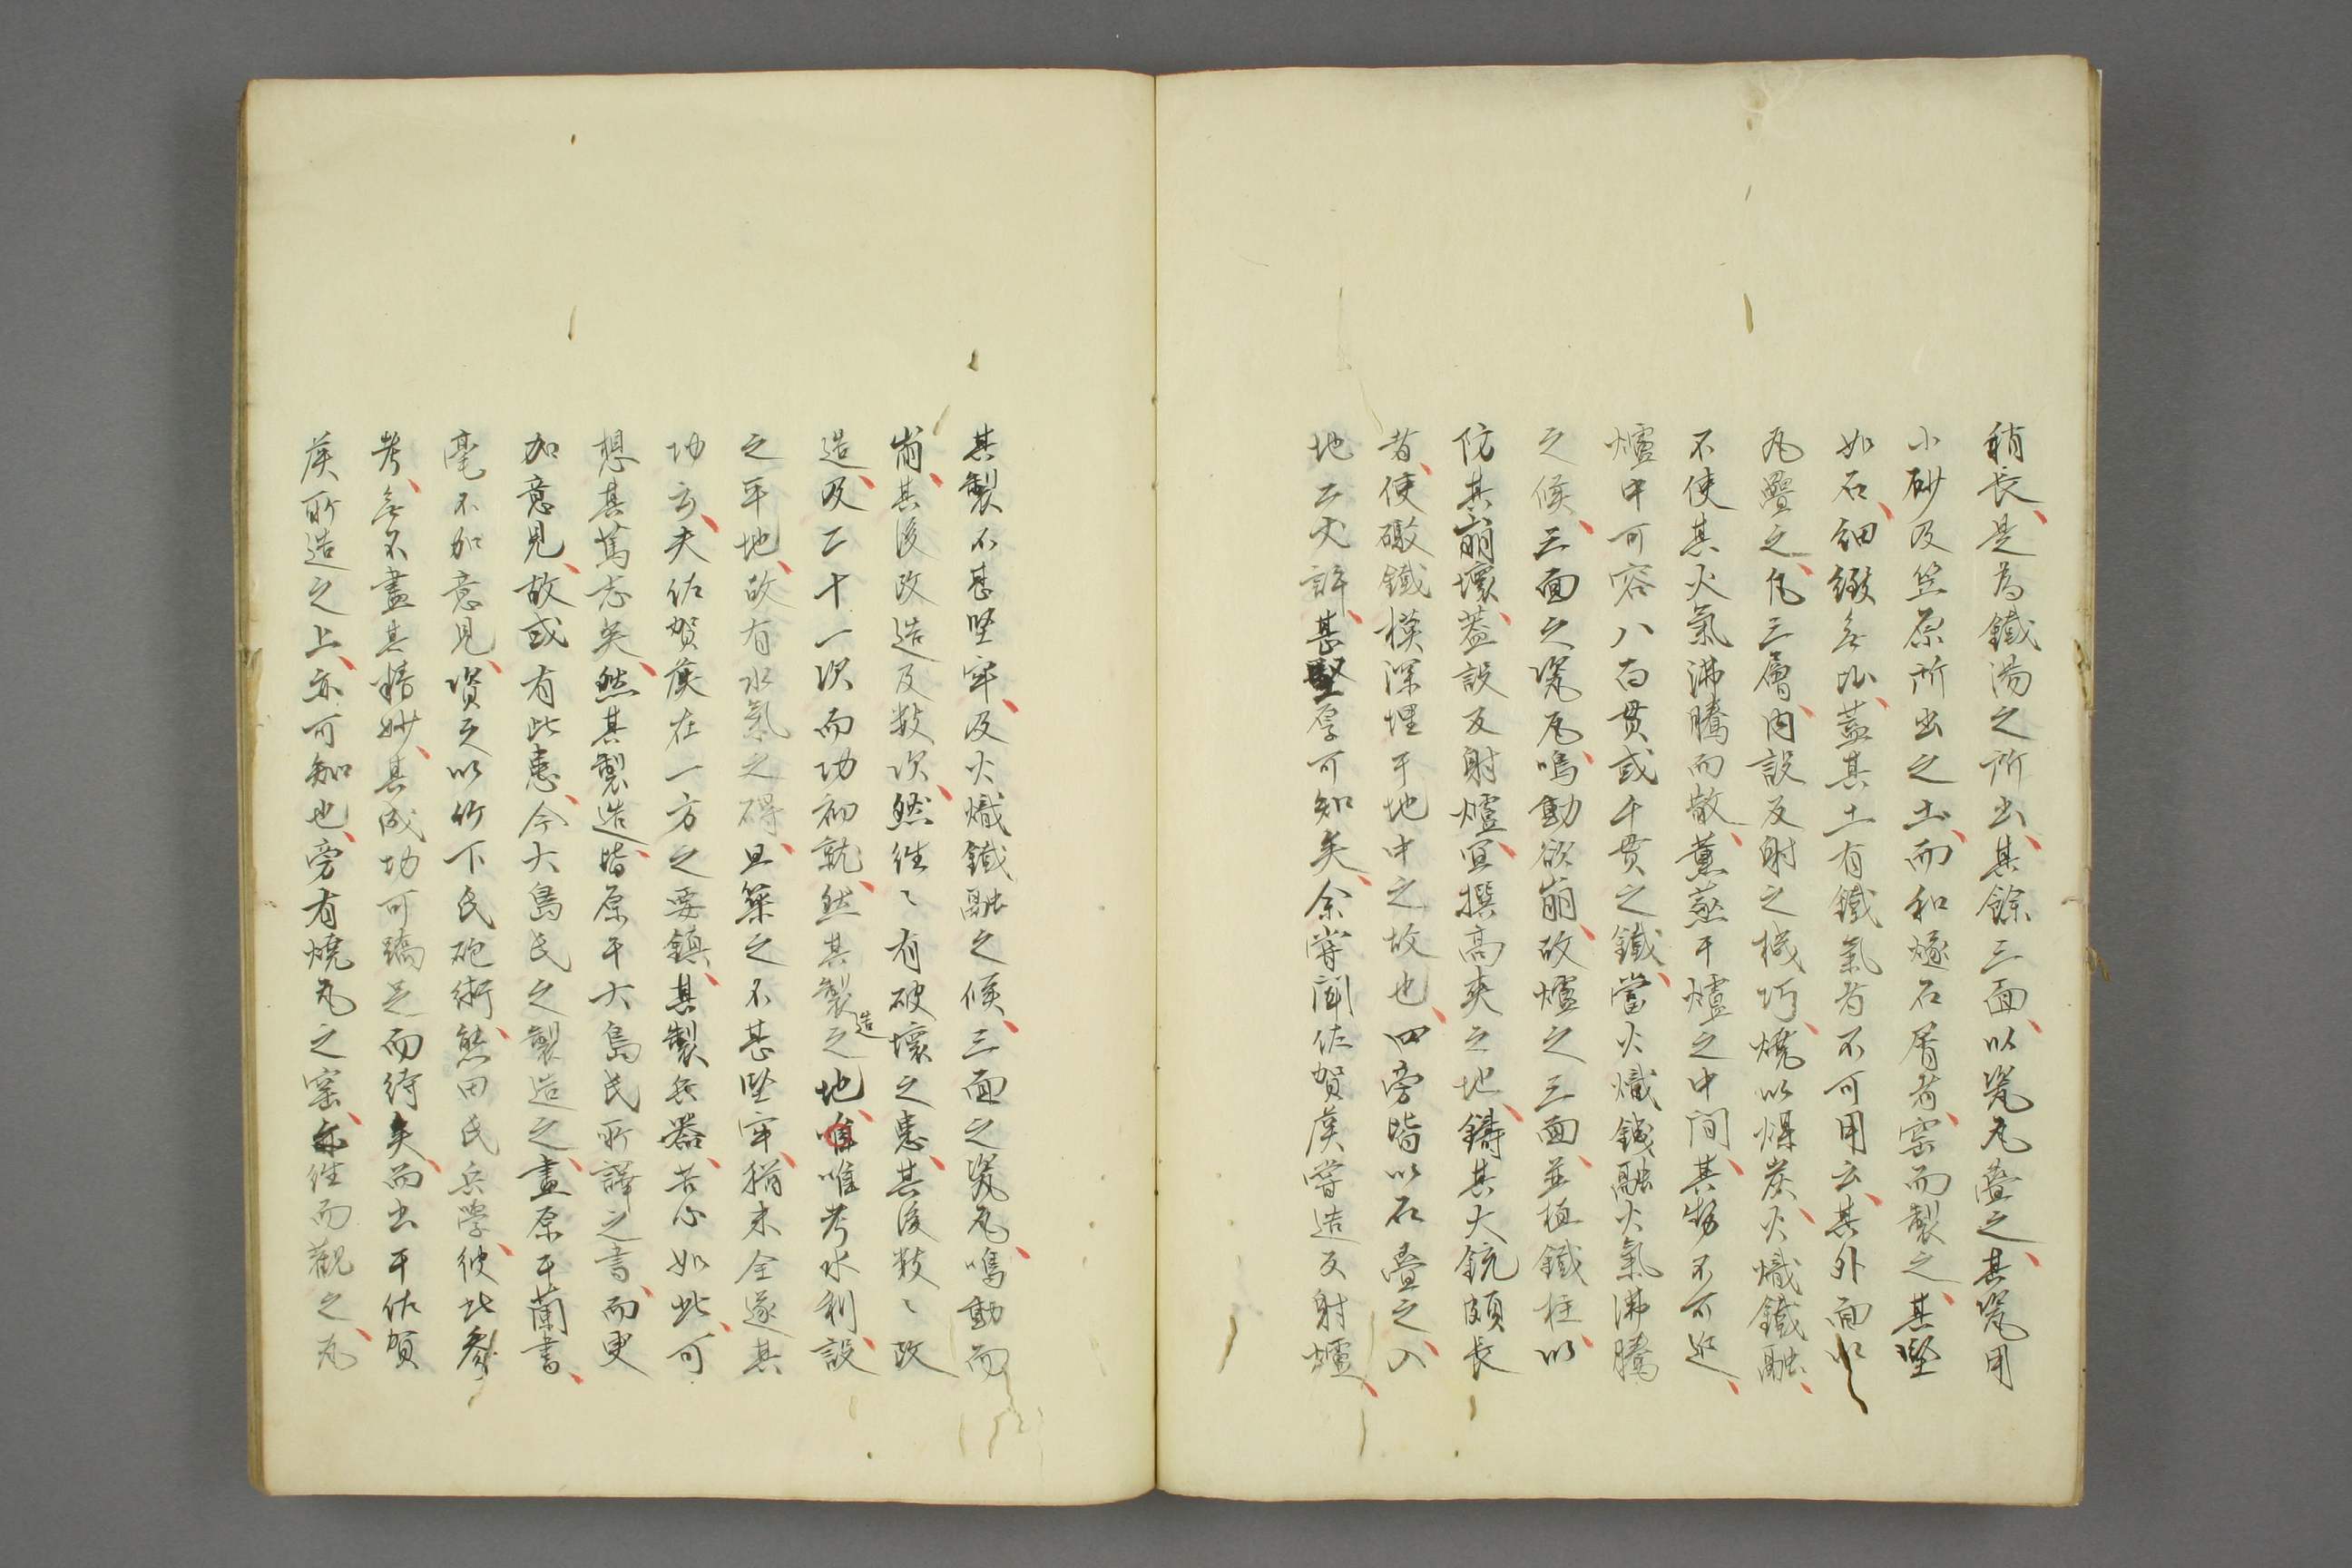 稍長、是為鐵湯之所出、其餘三面、以瓷瓦疊之、其瓷用
小砂及笠原所出之土、而和燧石屑者、窑而製之、其堅
如石、細緻無比、蓋其土有鐵氣者不可用云、其外面以
瓦疊之、凡三層、内設反射之機巧、燒以煤炭、火熾鐵融、
不使其火氣沸騰而散、薰蒸于爐之中間、其勢不可近、
爐中可容八百貫或千貫之鐵、當火熾鐵融火氣沸騰
之候、三面之瓷瓦、鳴動欲崩、故爐之三面、並植鐵柱、以
防其崩壞、蓋設反射爐、宜撰高爽之地、鑄其大銃頗長
者、使礮鐵模深埋于地中之故也、四旁皆以石疊之、入
地二丈許、甚堅厚可知矣、余嘗聞佐賀侯嘗造反射爐、
其製不甚堅牢、及火熾鐵融之候、三面之瓷瓦、鳴動而
崩、其後改造及数次、然往々有破壞之患、其後数々改
造、及二十一次而功初就、然其製造之地、唯唯考水利、設
之平地、故有水氣之碍、且築之不甚堅牢、猶未全遂其
功云、夫佐賀侯在一方之要鎮、其製兵器、苦心如此、可
想其篤志矣、然其製造、皆原于大島氏所譯之書、而更
加意見、故或有此患、今大島氏之製造之、盡原于蘭書、
毫不加意見、資之以竹下氏砲術、熊田氏兵學、彼此參
考、無不盡其精妙、其成功可蹻足而待矣、而出于佐賀
侯所造之上、亦可知也、旁有燒瓦之窑、亦往而觀之、瓦